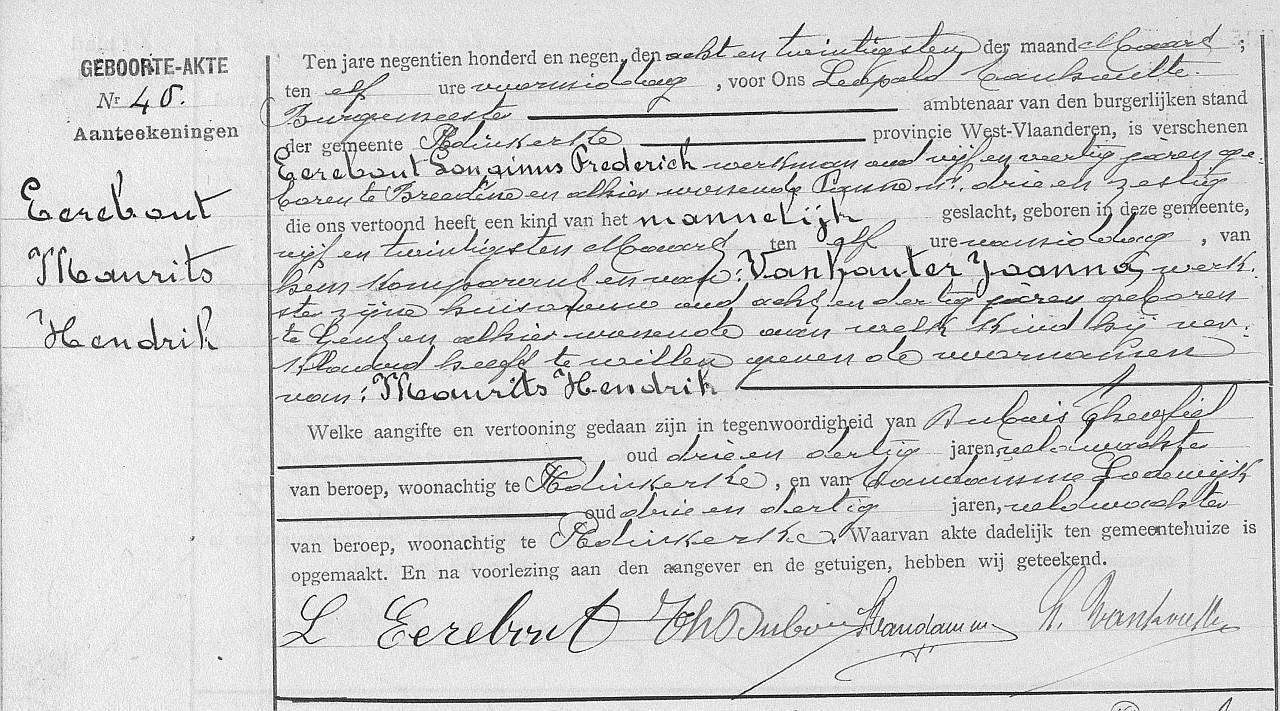 GEBOORTE-AKTE
Nr 40.
Aanteekeningen
Eerebout
Maurits
Hendrik
Ten jare negentien honderd en negen, den acht en twintigsten der maand Maard ;
ten elf ure voormiddag , voor Ons Leopold
Burgemeester ambtenaar van den burgerlijken stand
der gemeente Adinkerke provincie West-Vlaanderen, is verschenen
Eerebout Longinus Frederich werkman oud vijf en veertig jaren ge-
boren te Breedene en alhier wonende Panne Nr. drie en zestig
die ons vertoond heeft een kind van het mannelijk geslacht, geboren in deze gemeente,
vijf en twintigsten Maard ten elf ure voormiddag , van
hem komparant en van: Vanhouter Joanna, werk-
ster zijne huisvrouw oud acht en dertig jaren geboren
te Gent en alhier wonende aan welk kind hij ver-
klaard heeft te willen geven de voornamen
van: Maurits Hendrik
Welke aangifte en vertooning gedaan zijn in tegenwoordigheid van Dubois Theofiel
oud drie en dertig jaren, veldwachter
van beroep, woonachtig te Adinkerke, en van Vandamme Lodewijk
oud drie en dertig jaren, veldwachter
van beroep, woonachtig te Adinkerke. Waarvan akte dadelijk ten gemeentehuize is
opgemaakt. En na voorlezing aan den aangever en de getuigen, hebben wij geteekend.
L Eerebout Th Dubois Vandamme